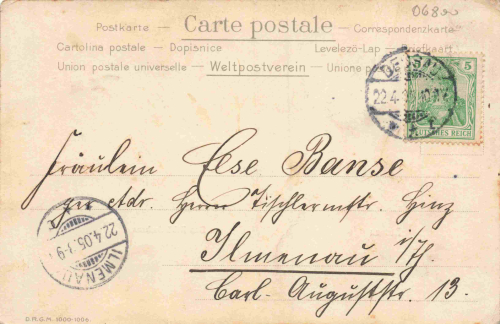 06800
Postkarte — Carte postale — Correspondenzkarte
Cartolina postale — Dopisnice Levelező-Lap — Brefkaart
Union postale universelle — Weltpostverein — Unione
5
DEUTSCHES REICH
DESSAU
22.4.
Fräulein Else Banse
per Adr. Herrn Tischlermstr. Hinz
Ilmenau i/Th.
Carl-Auguststr. 13.
22.4.05.
ILMENAU
D.R.G.M.